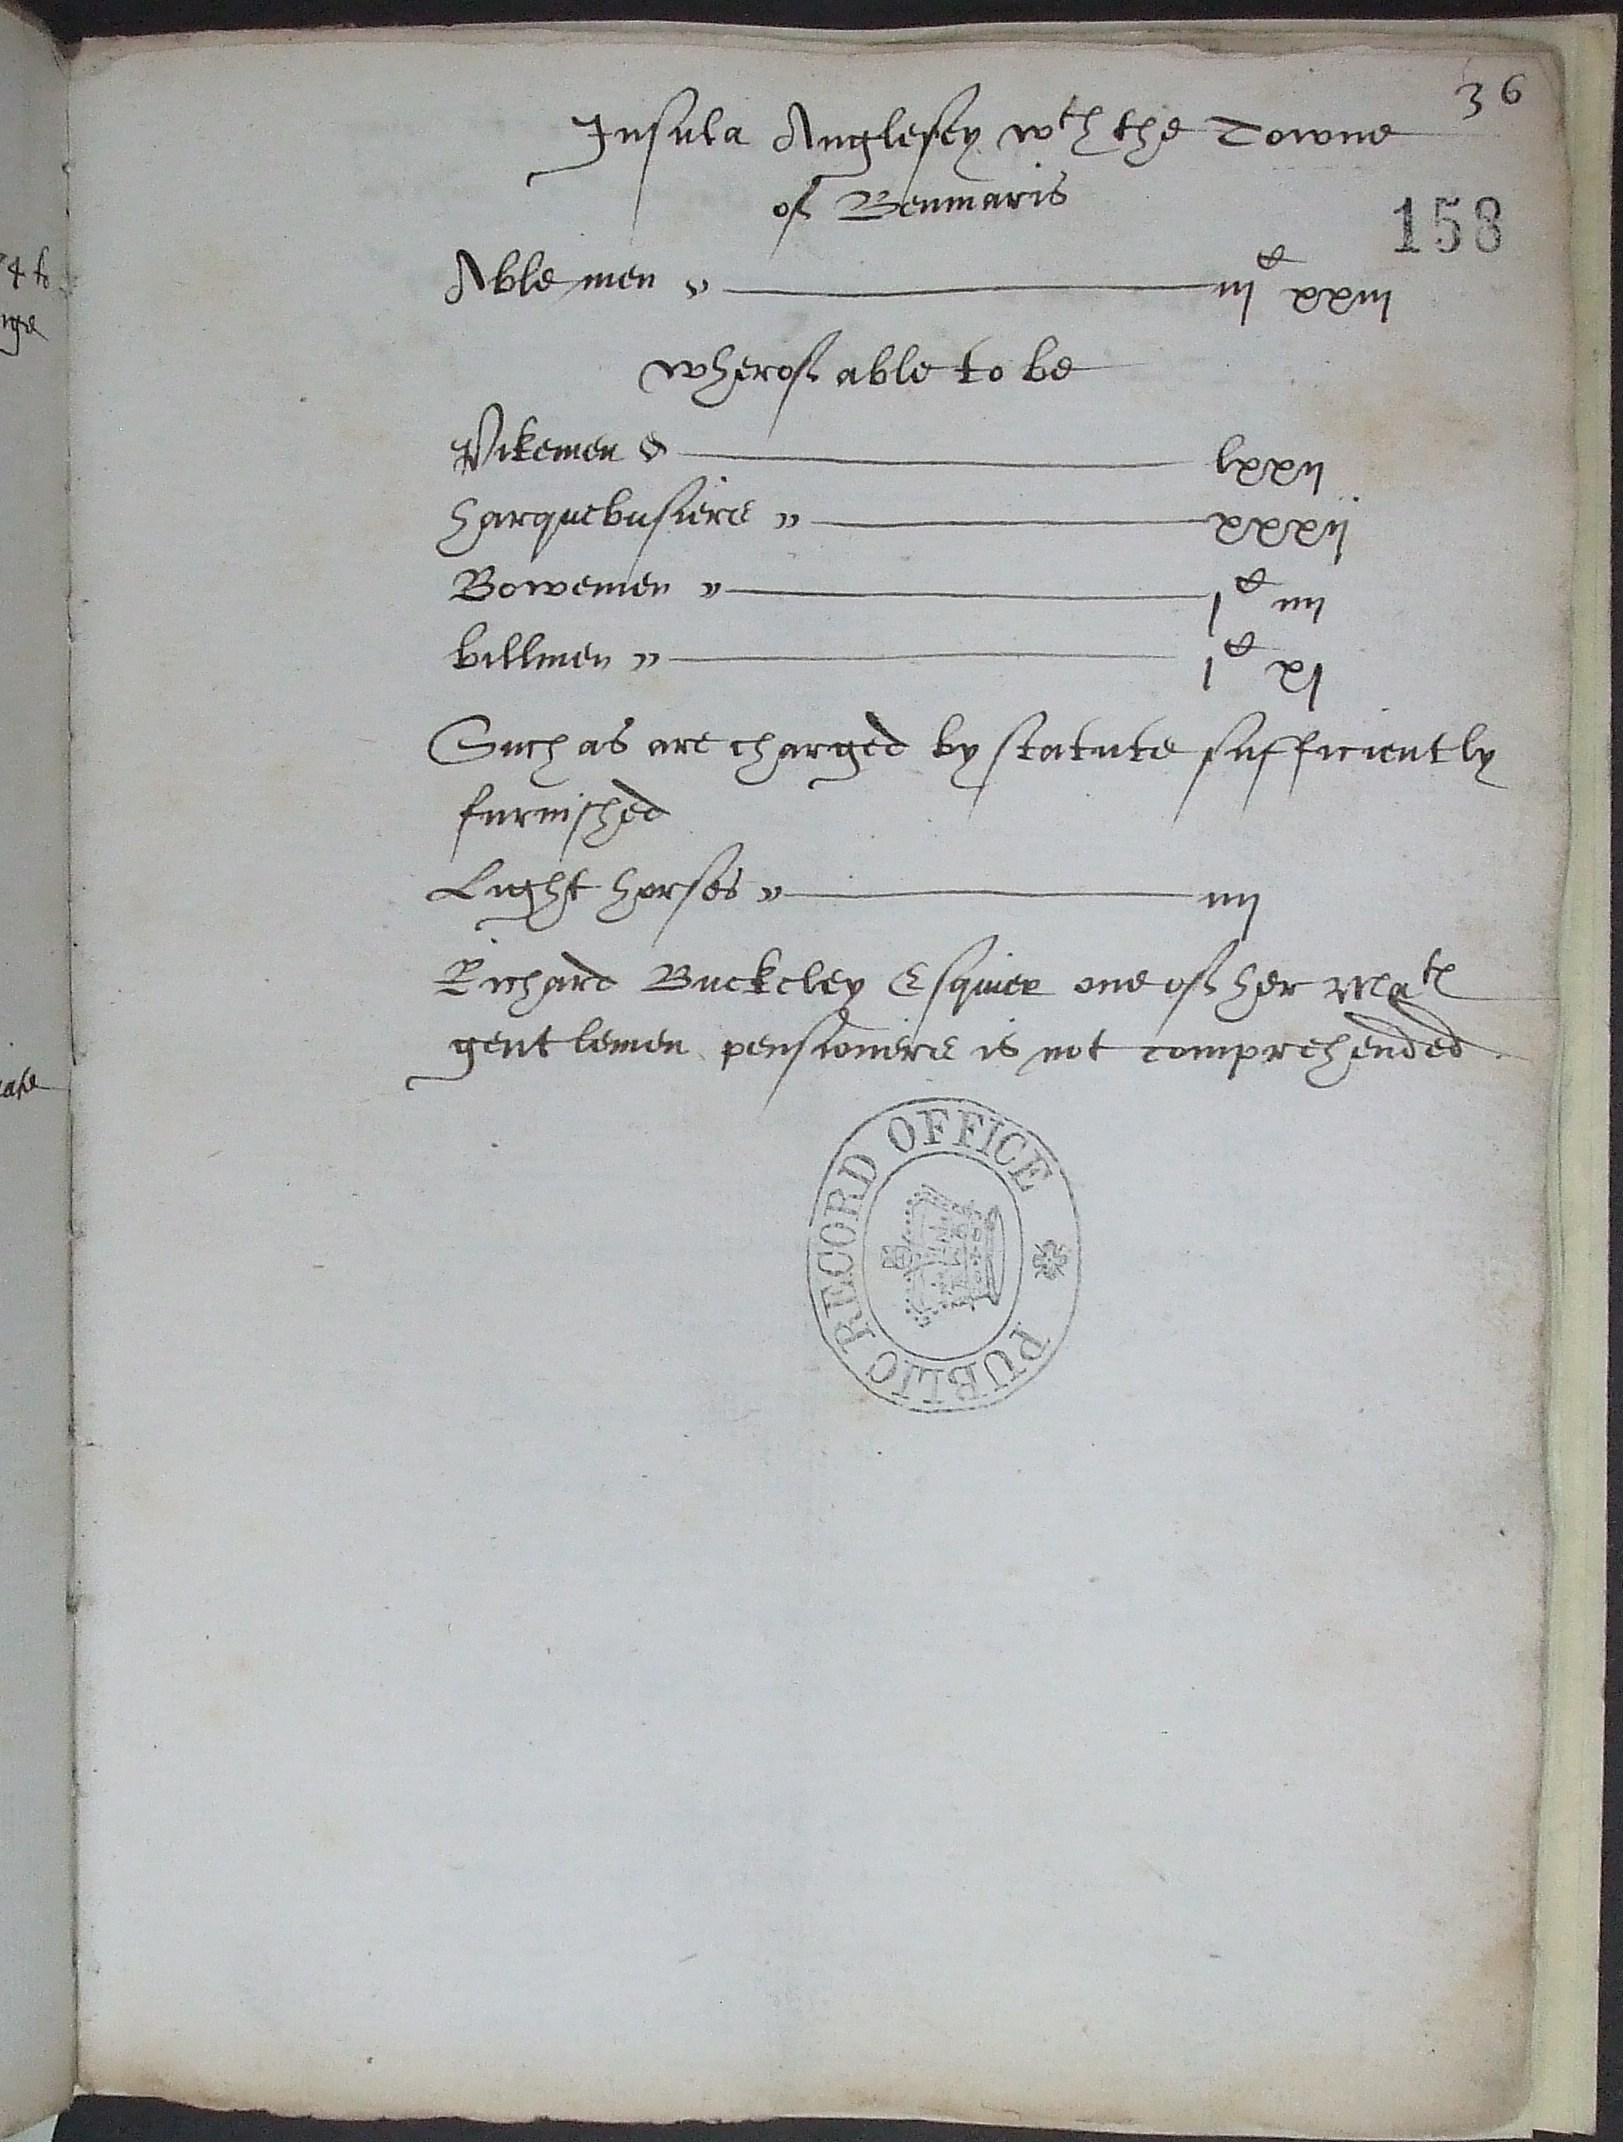 36
Insula Anglesey wth the Towne
of Beumaris
158
Able men iijc xxiij
wherof able to be
Pikemen lxxij
harquebusiers xxxij
Bowemen jc iiij
billmen jc xj
Such as are charged by statute sufficiently
furnished
Light horses iiij
Richard Buckeley Esquier one of her Mats
gentlemen pensioners is not comprehended.
PUBLIC RECORD OFFICE